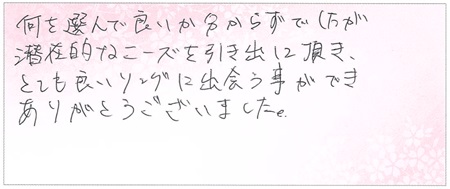 何を選んで良いか分からずでしたが
潜在的なニーズを引き出して頂き、
とても良いリングに出会う事ができ
ありがとうございました。